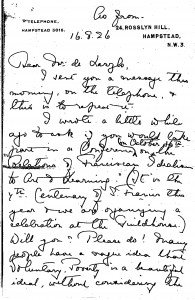 As from.
TELEPHONE,
HAMPSTEAD 5016.
24, ROSSLYN HILL,
HAMPSTEAD,
N.W.3.
16.8.26
Dear Mr. de
I sent you a message this
morning, on the telephone, &
this is to repeat it.
I wrote a little while
ago to ask if you would take
part in a Conference, on October 14th
Relations of Franciscan Idealism
to Art & Learning. (It is the
7th Centenary of S. Francis this
year & we are organizing a
celebration at the Guildhouse.)
Will you? Please do! Many
people have a vague idea that
Voluntary Poverty is a beautiful
ideal, without considering the